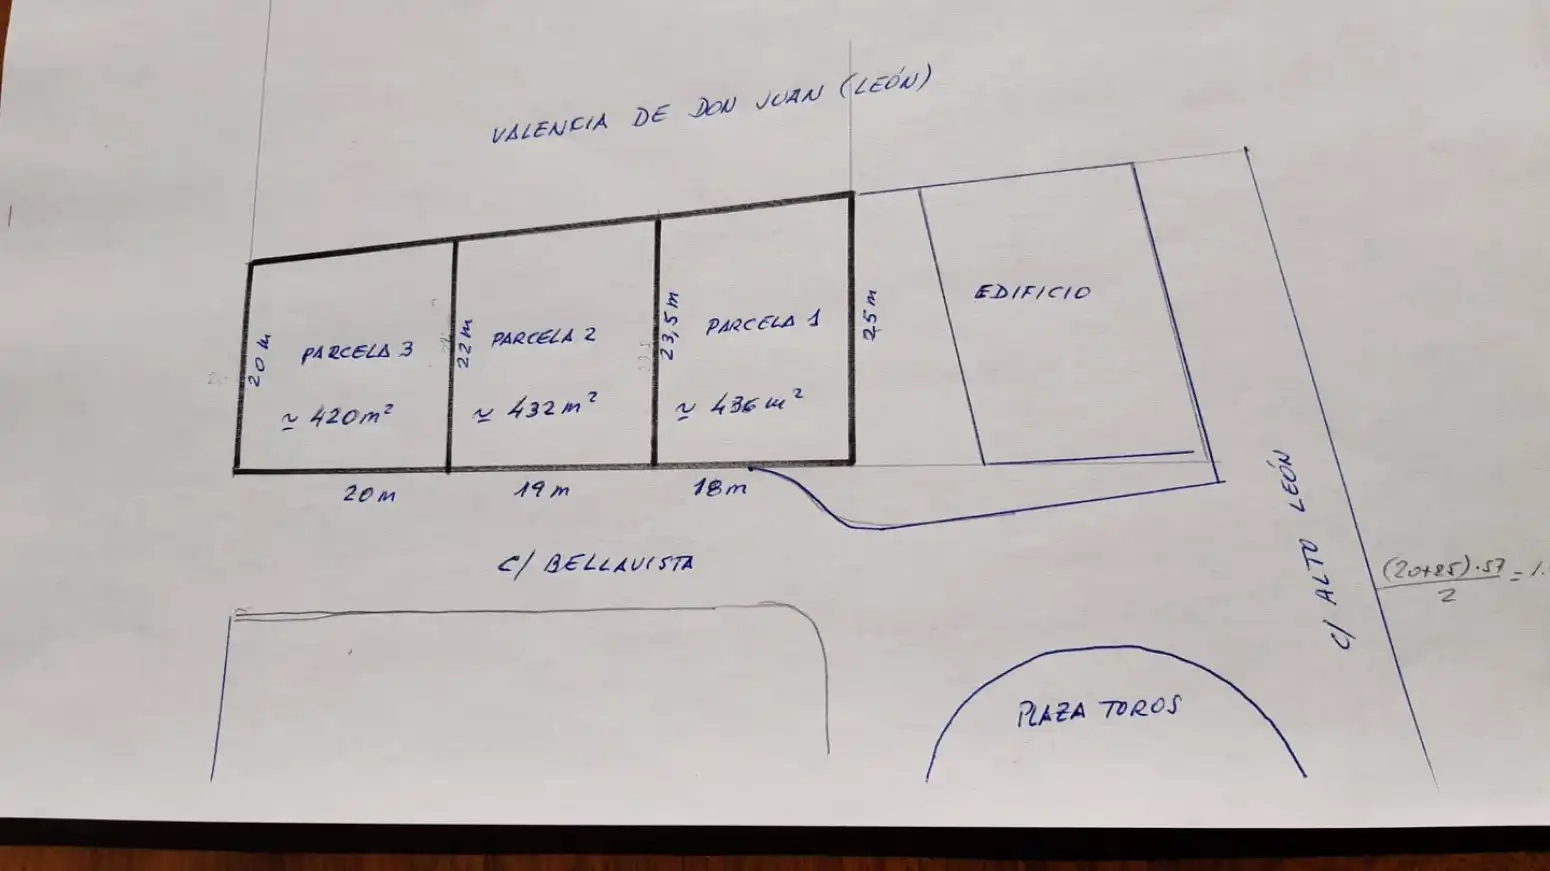 VALENCIA DE DON JUAN (LEÓN)
PARCELA 3
≃ 420 m²
20 m
22 m
PARCELA 2
≃ 432 m²
23,5 m
PARCELA 1
≃ 436 m²
25 m
EDIFICIO
20 m
19 m
18 m
C/ BELLAVISTA
C/ ALTO LEÓN
(20+25)·57
2
= 1.
PLAZA TOROS